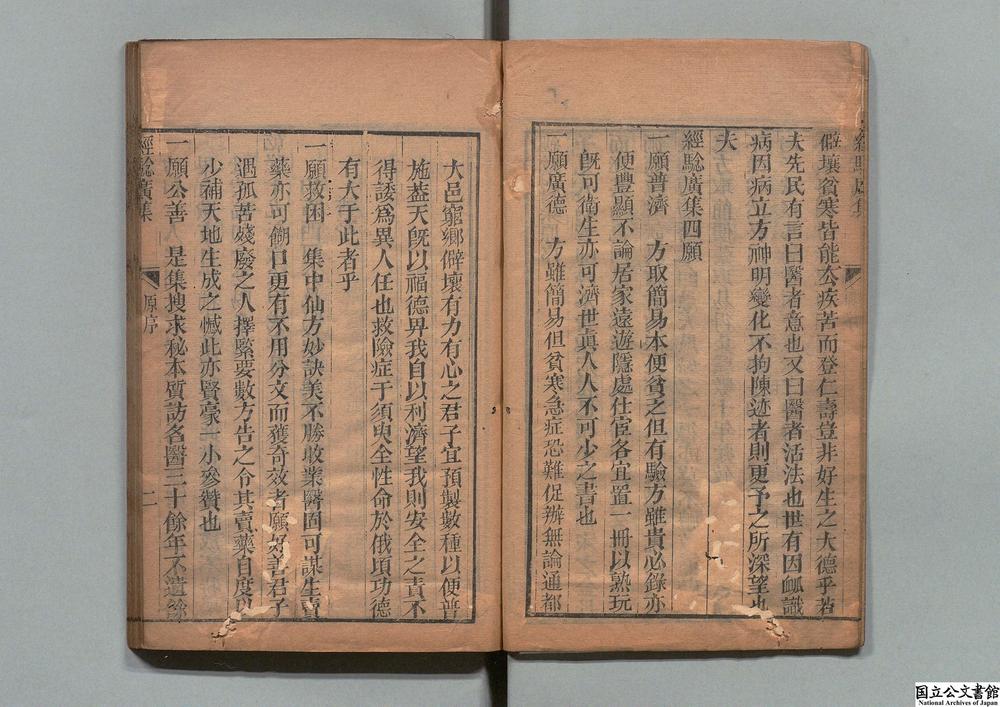 僻壤貧寒皆能去疾苦而登仁壽豈非好生之大德乎若
夫先民有言曰醫者意也又曰醫者活法也世有因證識
病因病立方神明變化不拘陳迹者則更予之所深望也
夫
經驗廣集四願
一願普濟 方取簡易本便貧乏但有驗方雖貴必錄亦
便豐顯不論居家遠遊隱處仕宦各宜置一冊以熟玩
旣可衛生亦可濟世眞人人不可少之書也
一願廣德 方雖簡易但貧寒急症恐難促辦無論通都
大邑窮鄉僻壤有力有心之君子宜預製數種以便普
施蓋天旣以福德畀我自以利濟望我則安全之責不
得諉爲異人任也救險症于須臾全性命於俄頃功德
有大于此者乎
一願救困 集中仙方妙訣美不勝收業醫固可謀生賣
藥亦可餬口更有不用分文而獲奇效者願好善君子
遇孤苦殘廢之人擇緊要數方告之令其賣藥自度以
少補天地生成之憾此亦賢豪一小參贊也
一願公善 是集搜求秘本質訪名醫三十餘年不遺餘
經驗廣集
原序
二
国立公文書館
National Archives of Japan